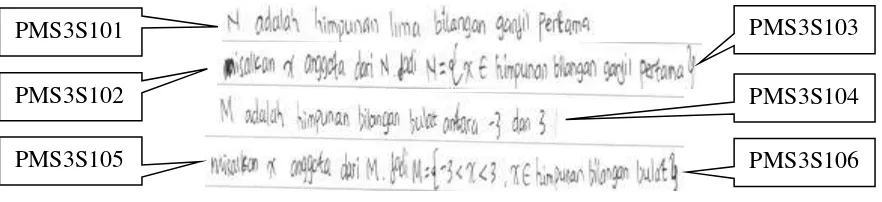 PMS3S101
N adalah himpunan lima bilangan ganjil pertama
PMS3S103
PMS3S102
misalkan x anggota dari N. Jadi N={x ∈ himpunan bilangan ganjil pertama}
M adalah himpunan bilangan bulat antara -3 dan 3
PMS3S104
PMS3S105
misalkan x anggota dari M. Jadi M={-3<x<3, x ∈ himpunan bilangan bulat}
PMS3S106